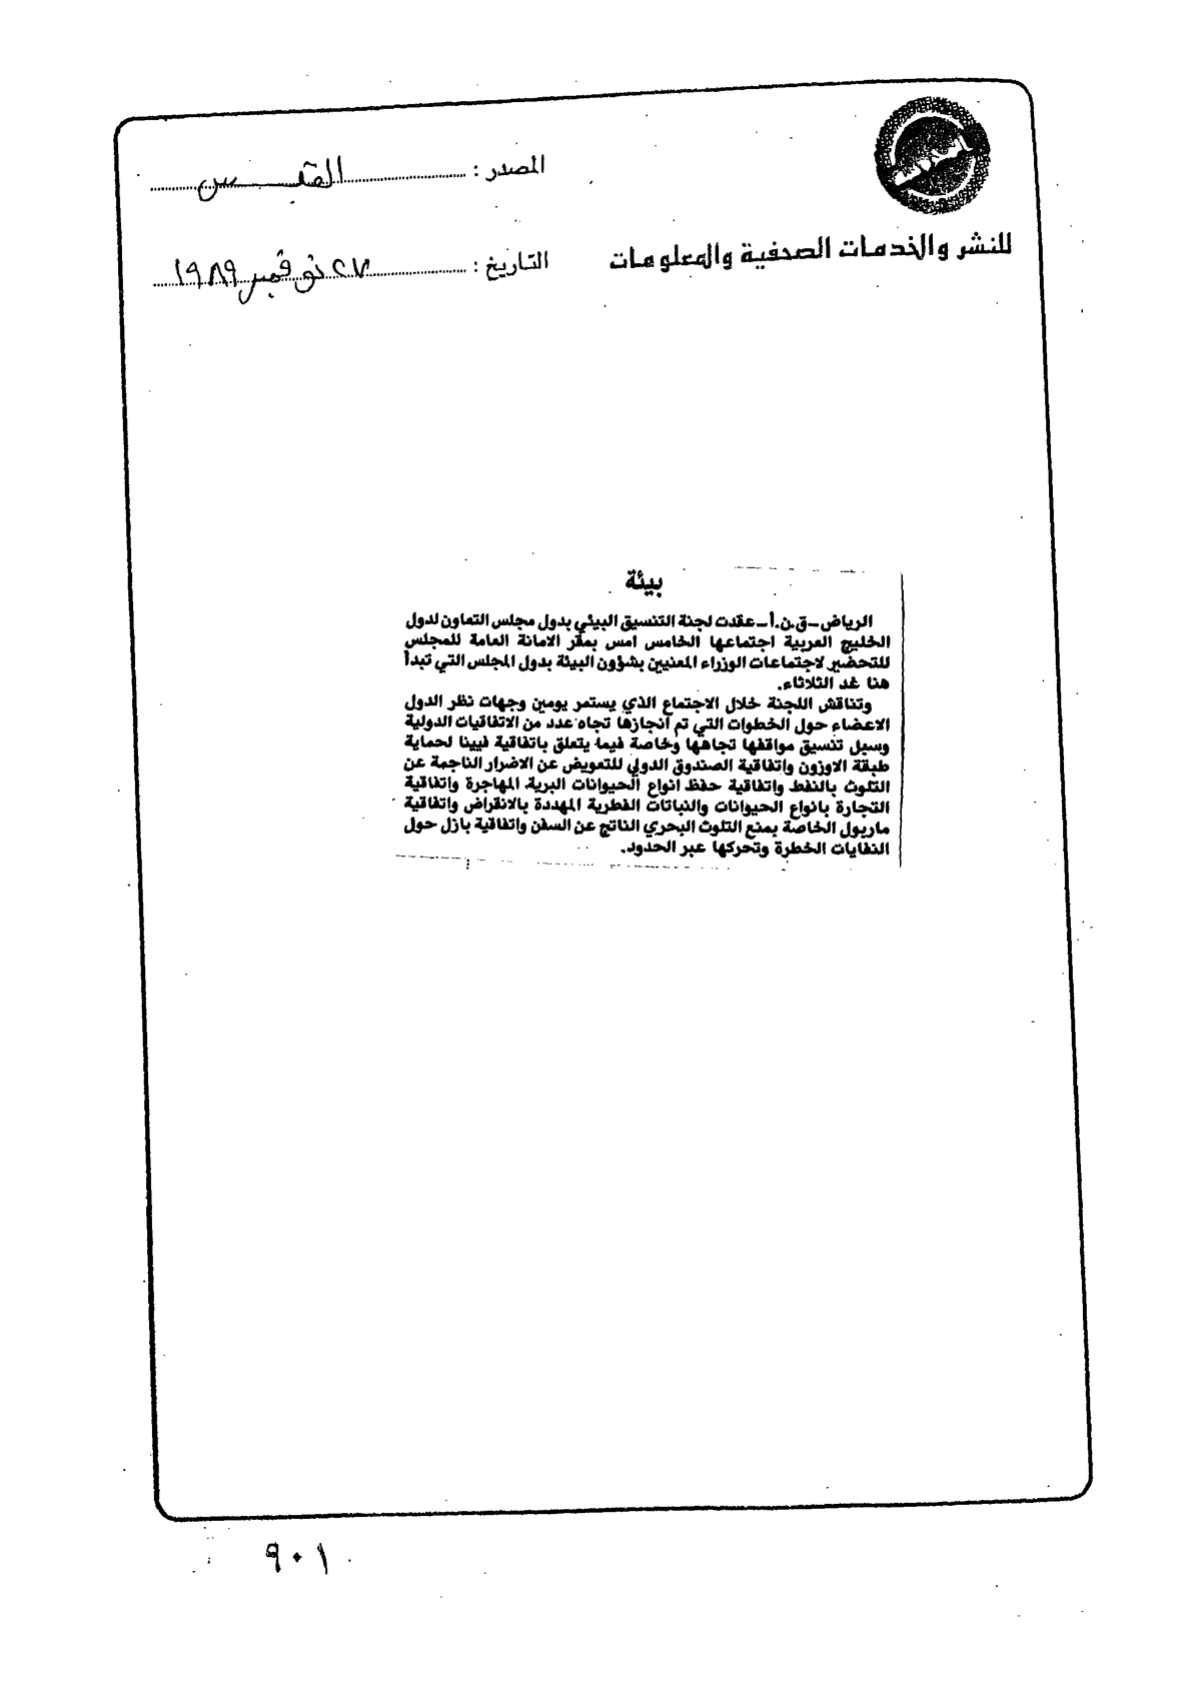 المصدر : القبس
للنشر والخدمات الصحفية والمعلومات
التاريخ : ٢٧ نوفمبر ١٩٨٩
بيئة
الرياض ـ ق.ن.أ ـ عقدت لجنة التنسيق البيئي بدول مجلس التعاون لدول
الخليج العربية اجتماعها الخامس امس بمقر الامانة العامة للمجلس
للتحضير لاجتماعات الوزراء المعنيين بشؤون البيئة بدول المجلس التي تبدأ
هنا غد الثلاثاء.
وتناقش اللجنة خلال الاجتماع الذي يستمر يومين وجهات نظر الدول
الاعضاء حول الخطوات التي تم انجازها تجاه عدد من الاتفاقيات الدولية
وسبل تنسيق مواقفها تجاهها وخاصة فيما يتعلق باتفاقية فيينا لحماية
طبقة الاوزون واتفاقية الصندوق الدولي للتعويض عن الاضرار الناجمة عن
التلوث بالنفط واتفاقية حفظ انواع الحيوانات البرية المهاجرة واتفاقية
التجارة بانواع الحيوانات والنباتات الفطرية المهددة بالانقراض واتفاقية
ماربول الخاصة بمنع التلوث البحري الناتج عن السفن واتفاقية بازل حول
النفايات الخطرة وتحركها عبر الحدود.
٩٠١